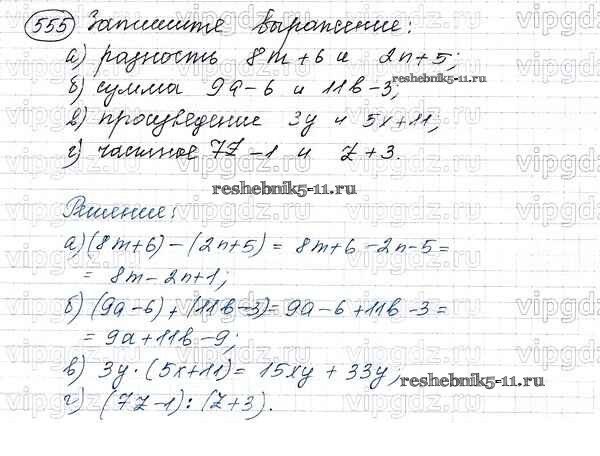 555 Запишите выражение:
а) разность 8m+6 и 2n+5;
reshebnik5-11.ru
б) сумма 9a-6 и 11b-3;
в) произведение 3y и 5x+11;
г) частное 7z-1 и z+3.
reshebnik5-11.ru
Решение:
а) (8m+6)-(2n+5) = 8m+6-2n-5=
= 8m-2n+1;
б) (9a-6)+(11b-3)=9a-6+11b-3=
= 9a+11b-9;
в) 3y·(5x+11)=15xy+33y;
reshebnik5-11.ru
г) (7z-1):(z+3).
vipgdz.ru